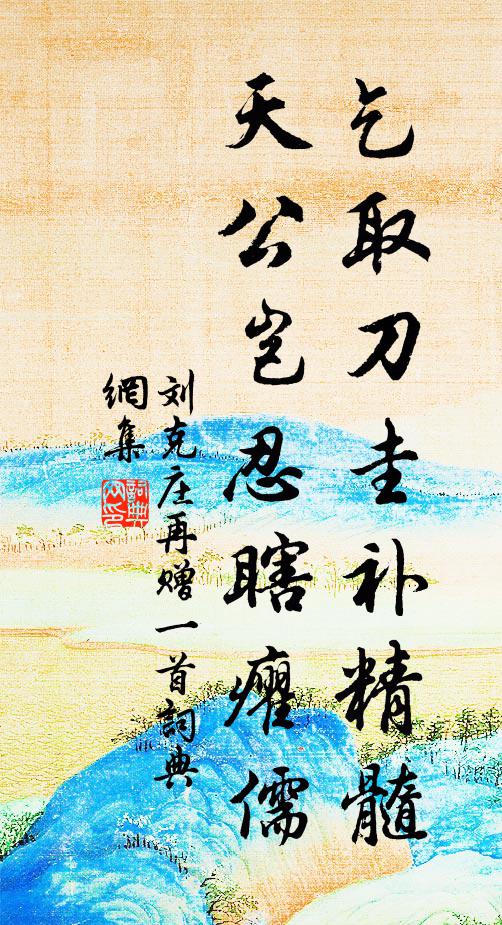 乞取刀圭补精髓
天公岂忍瞎癯儒
刘克庄再赠一首詞典
網集